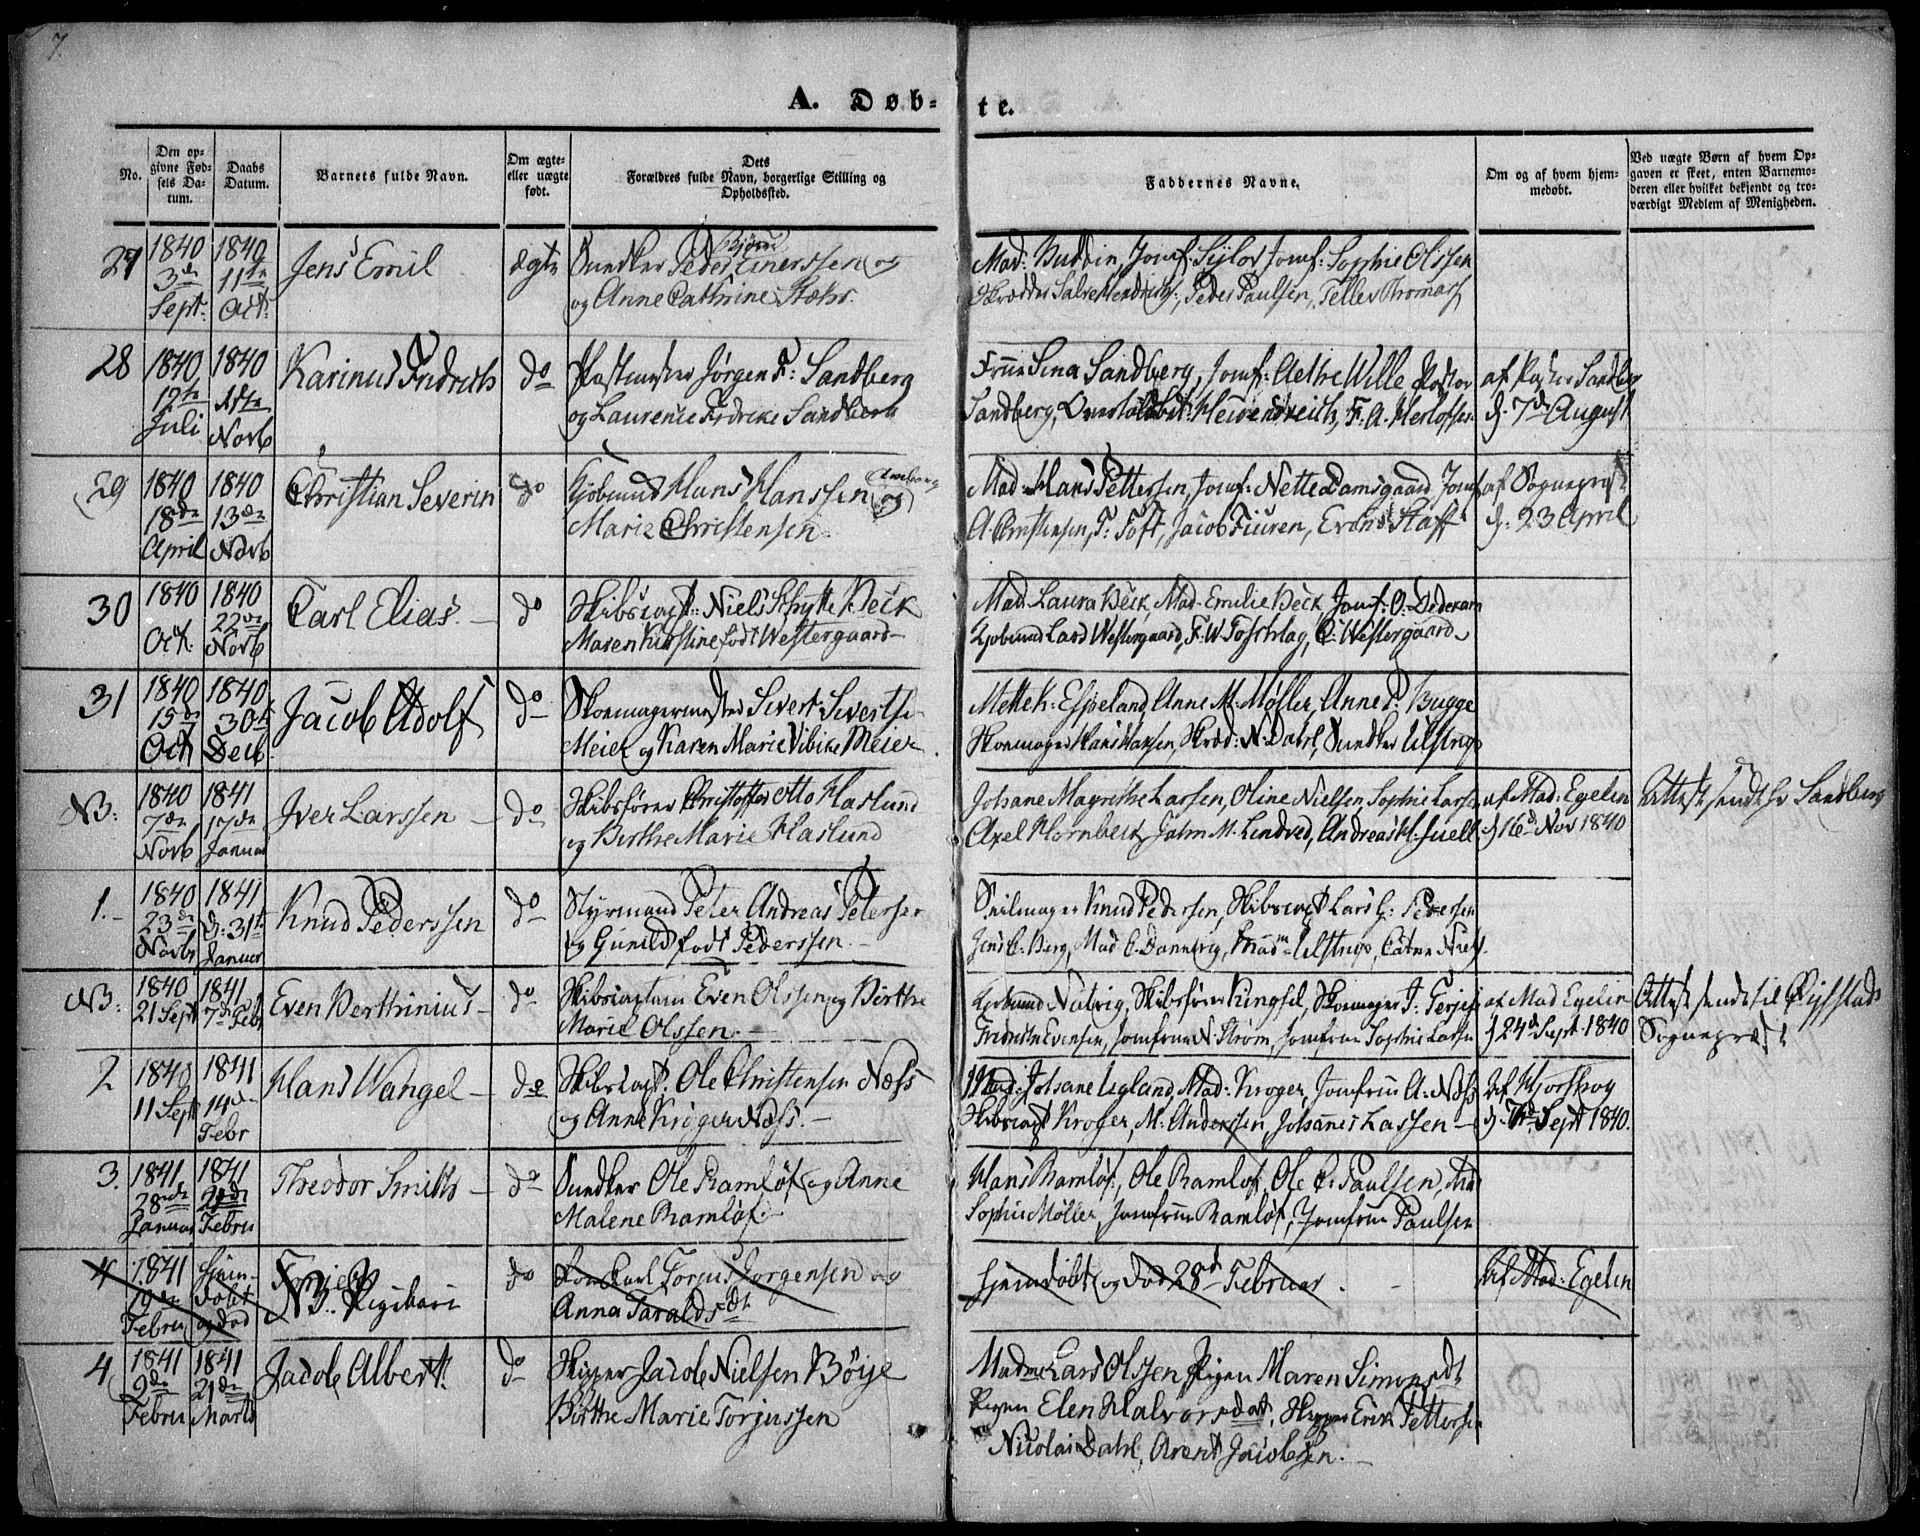 7.
A. Døb- te.
No. | Den opgivne Fødsels Datum. | Daabs Datum. | Barnets fulde Navn. | Om ægte- eller uægte født. | Dets Forældres fulde Navn, borgerlige Stilling og Opholdssted. | Faddernes Navne. | Om og af hvem hjemmedøbt. | Ved uægte Børn af hvem Opgaven er skeet, enten Barnemoderen eller hvilket bekjendt og troværdigt Medlem af Menigheden.
27 1840 3de Sept: 1840 11te Oct. Jens Emil ægte
Peder Einerssen og
Bjørn
og Anne Cathrine Stæhr.
Mad: Buddin, Jomf: Jomf: Sophie Olssen
Peder Paulsen, Tellef Thomas
28 1840 12te Juli 1840 1ste Novb Karinus Fredrich do
Postmester Jørgen F: Sandberg
og Laurence Fredrike Sandberg
Frue Sina Sandberg, Jomf: Aethe Wille Pastor
Sandberg, Heidenreich, F. A. Herlofsen
af Pastor Sandberg
d. 7de August
29 1840 18de April 1840 13de Novb Christian Severin do
Kjøbmd Hans Hanssen og
Marie Christensen
Mad. Hans Pettersen, Jomf: Nette Damsgaard Jomf
A. Christensen, F: Toft, Jacob Fiuren, Evans Staff
af Sognepræst
d. 23 April
30 1840 Oct. 1840 22de Novb Carl Elias. do
Skibscapt: Niels Schytte Beck
Maren Kirstine født Westergaard
Mad Laura Beck Mad. Emilie Beck, Jomf: O. Dedekam
Kjøbmd Lars Westergaard, F. W. C. Westergaard
31 1840 15de Oct 1840 30te Decb. Jacob Adolf do
Skomagermester Sivert Sivertse
Meier og Karen Marie Vibike Meier.
Mette K. Espeland, Anne M. Møller, Anne P. Bugge
Skomager Hans Hansen, Skræd: N. Dahl, Sundkler Ulstrup
NB: 1840 7de Novb 1841 17de Januar Iver Larssen do
Skibsfører Christoffer Otto Haslund
og Birthe Marie Haslund
Johane Magrethe Larsen, Oline Nielsen, Sophie Larsen
Axel Hornbeck, John M. Lindved, Andreas H. Juell
af Mad. Egelin
d 16d Nov 1840
Attest sendt Hr Sandberg
1. 1840 23de Novbr 1841 d. 31te Januar Knud Pederssen do
Styrmand Peter Andreas Peterser
og Gunild født Pederssen.
Seilmager Knud Pedersen, Skibscapt Lars G: Pedersen
Jens C. Berg, Mad C. Dannevig, Madm Ulstrup,
NB: 1840 21 Sept 1841 7de Feb Even Berthinius do
Skibscaptain Even Olssen og Birthe
Marie Olssen.
Kjøbmd Natvig, Skibsfører Kingsel, Skomager T. Terjes
Evensen, Jomfrue N. Strøm, Jomfrue Sophie Larsen
af Mad Egelin
d 24d Sept 1840
Attest sendt til
Sognepræst
2 1840 11 Sept 1841 14de Febr Hans Wangel do
Skibscapt. Ole Christensen Næss
og Anne Krøger Næss.
Mad: Johane Ugland, Mad: Krøger, Jomfrue A. Næss
Skibscapt Kroger, M. Anderssen, Johannes Lassen
Af Hjorthog
d. Sept 1840.
3. 1841 28nde Januar 1841 21de Febru Theodor Smith do
Sundkler Ole Ramløf og Anne
Malene Ramløf.
Hans Ramløf, Ole Ramløf, Ole C. Paulsen,
Sophie Møller, Jomfrue Ramløf, Jomfrue Paulsen
4 1841 19de Febru hjemdøbt og død NB. Pigebarn do
Torjus Jorgensen og
Anna Taraldsdt
hjemdøbt og død 28d Februar.
Af Mad: Egelin
4 1841 9de Febru 1841 21de Marts Jacob Albert. do
Skipper Jacob Nielsen Bøije
Birthe Marie Torjussen
Madme Lars Olssen Pigen Maren Simonsdt
Pigen Elen Halvorsdat, Skipper Erik Pettersen
Nicolai Dahl, Arent Jacobsen.